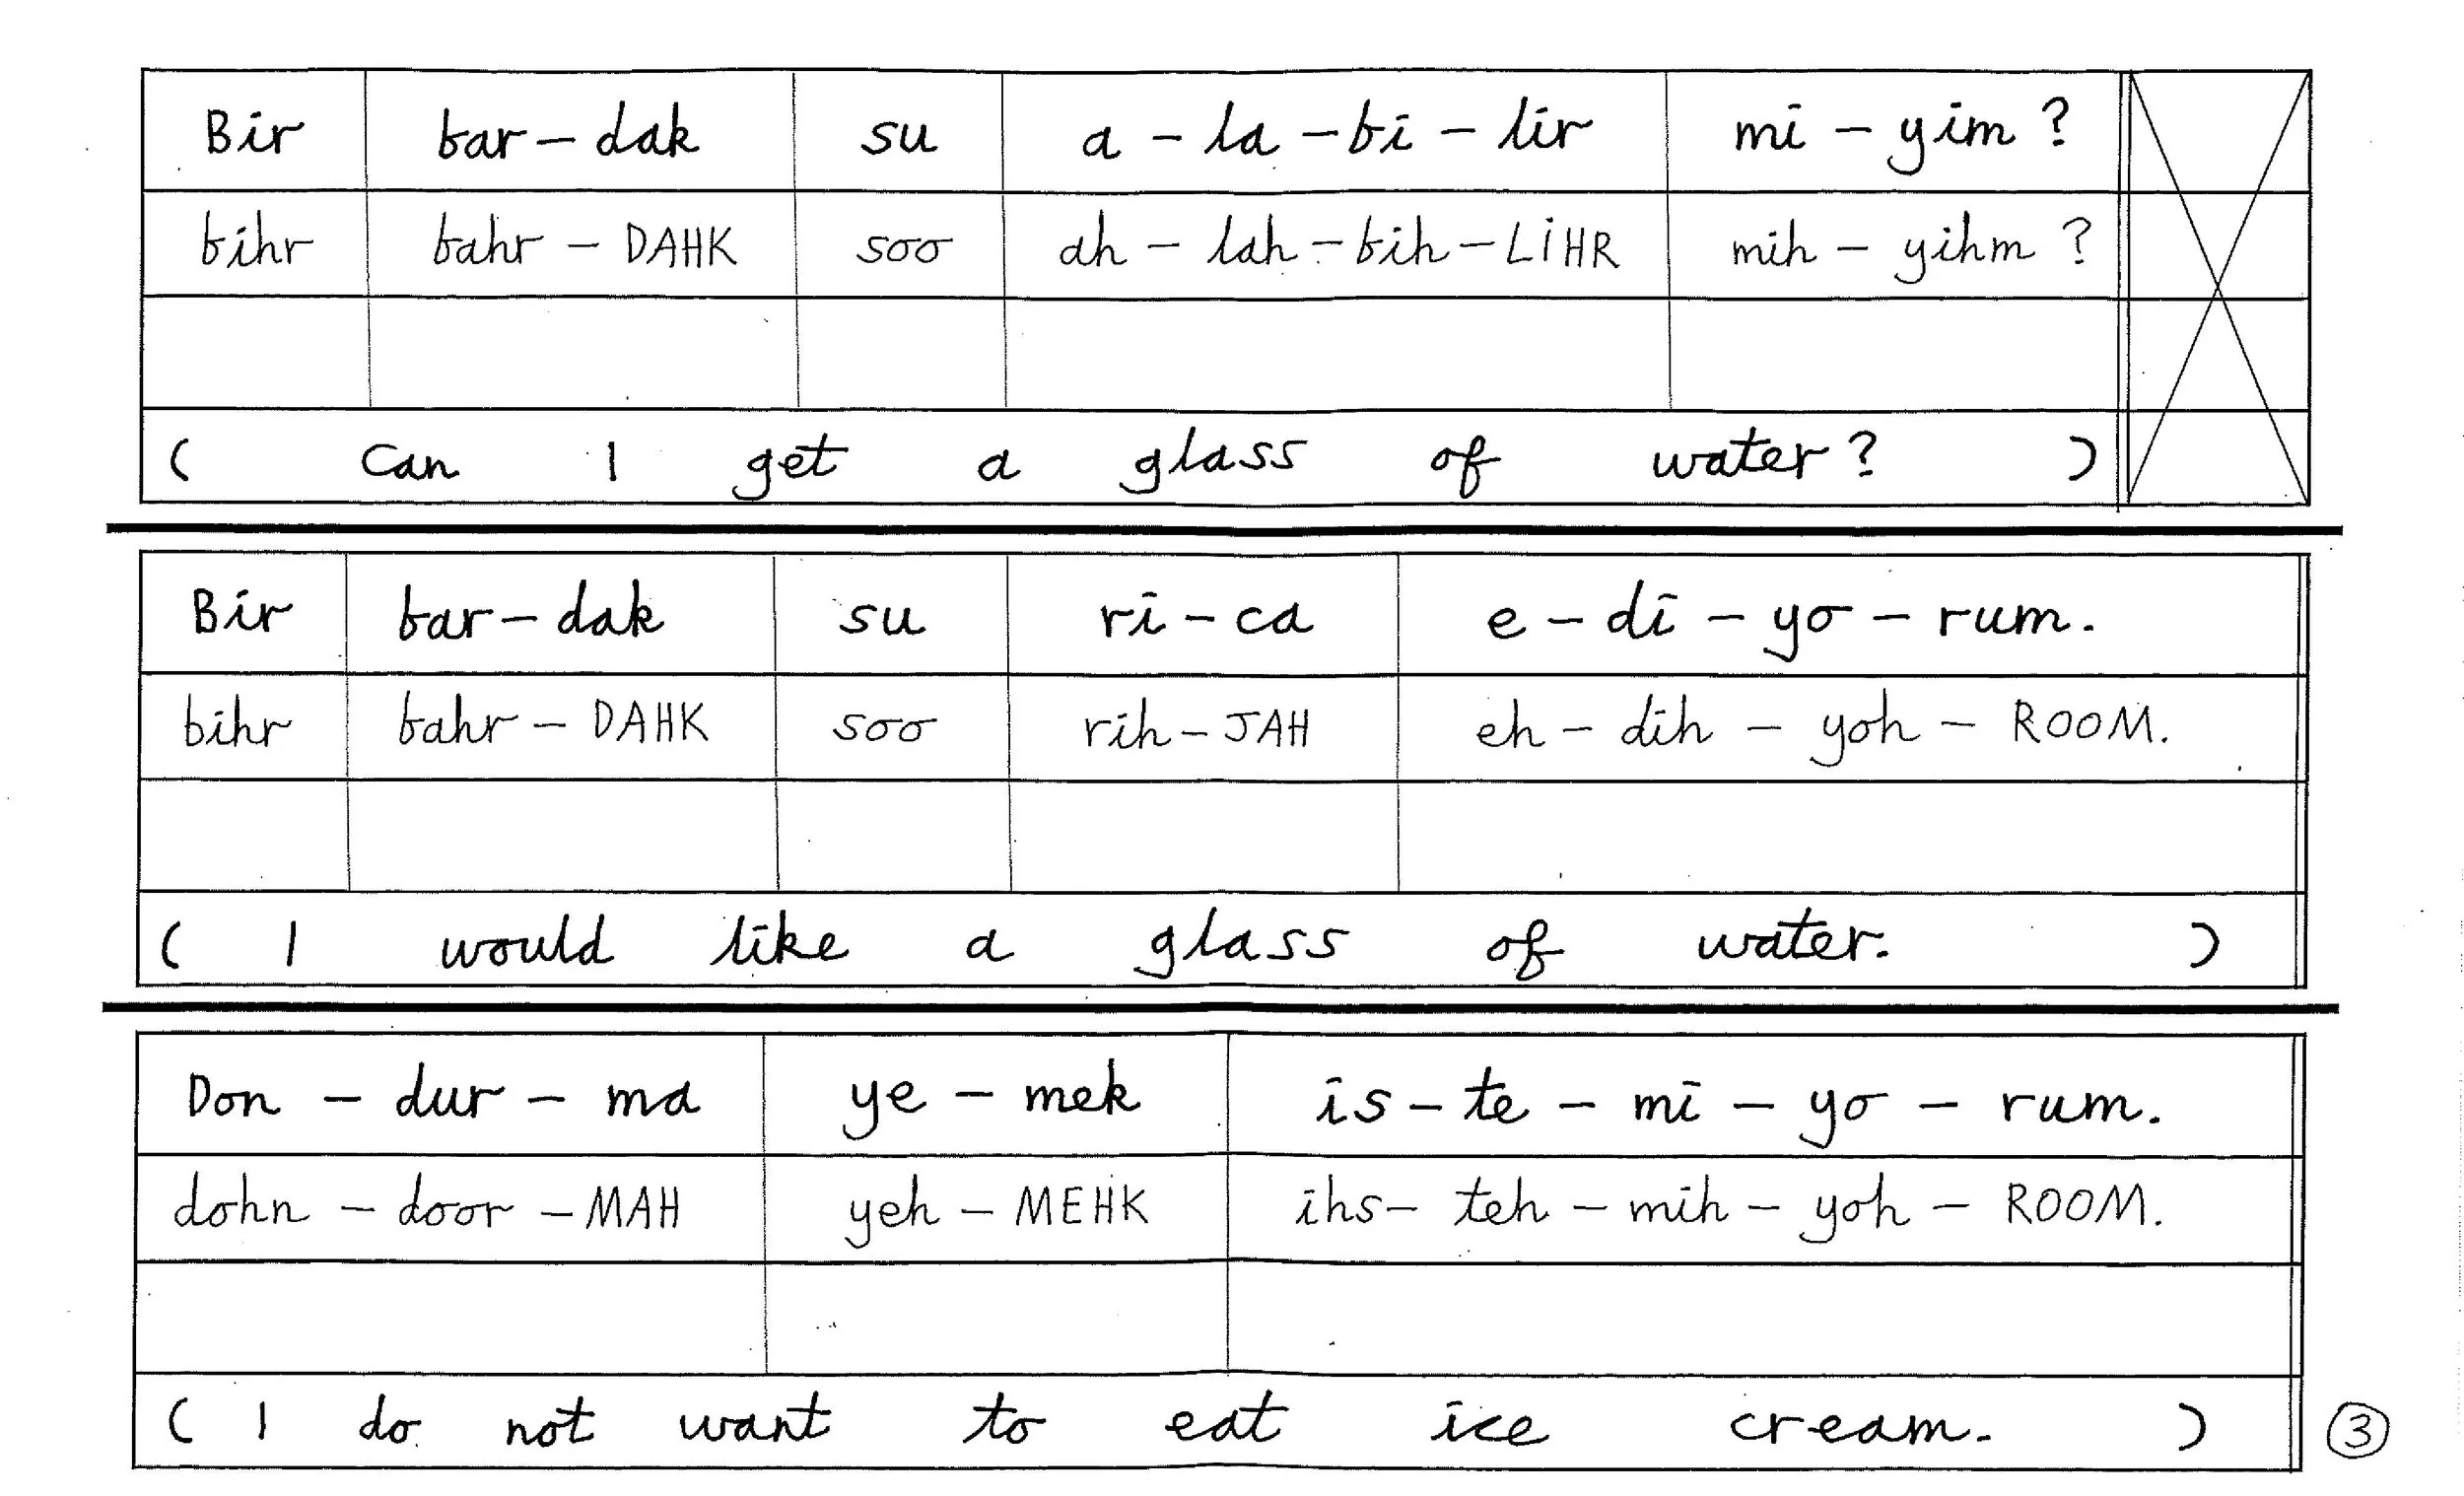 Bir bar-dak su a-la-bi-lir mi-yim?
bihr bahr-DAHK soo ah-lah-bih-LİHR mih-yihm?
( can I get a glass of water? )
Bir bar-dak su ri-ca e-di-yo-rum.
bihr bahr-DAHK soo rih-JAH eh-dih-yoh-ROOM.
( I would like a glass of water. )
Don-dur-ma ye-mek is-te-mi-yo-rum.
dohn-door-MAH yeh-MEHK ihs-teh-mih-yoh-ROOM.
( I do not want to eat ice cream. )
3